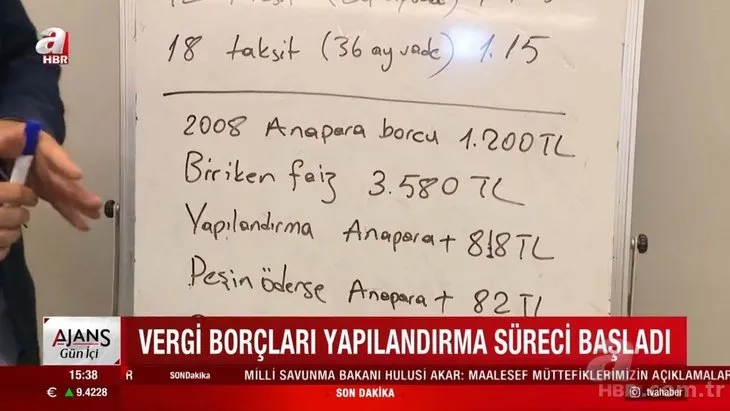 a
HBR
18 taksit (36 ay vade) 1.15
2008 Anapara borcu 1.200 TL
Biriken faiz 3.580 TL
Yapılandırma Anapara + 818 TL
Peşin öderse Anapara + 82 TL
AJANS
Gün İçi
VERGİ BORÇLARI YAPILANDIRMA SÜRECİ BAŞLADI
15:38
R
SONDakika
MİLLİ SAVUNMA BAKANI HULUSİ AKAR: MAALESEF MÜTTEFİKLERİMİZİN AÇIKLAMALAR
€ 9.4228
SON DAKİKA
tvahaber
a
HBR.com.tr